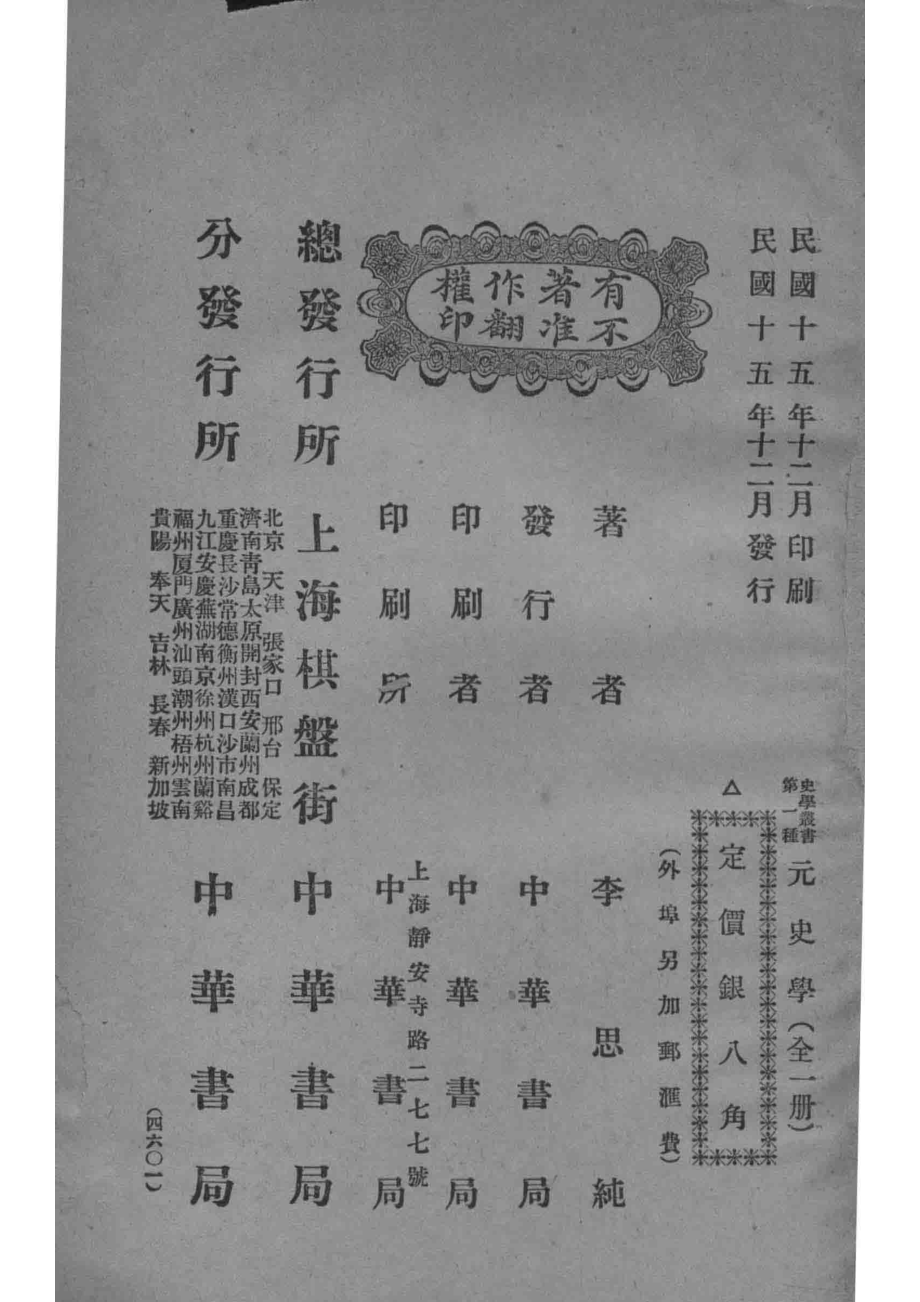 民國十五年十二月印刷
民國十五年十二月發行
史學叢書
第一種
元史學(全一册)
△
定價銀八角
(外埠另加郵匯費)
有不
著准
作翻
權印
著者 李思純
發行者 中華書局
印刷者 中華書局
上海靜安寺路二七七號
印刷所 中華書局
總發行所 上海棋盤街 中華書局
分發行所
北京 天津 張家口 邢台 保定
濟南靑島太原開封西安蘭州成都
重慶長沙常德衡州漢口沙市南昌
九江安慶蕪湖南京徐州杭州蘭谿
福州厦門廣州汕頭潮州梧州雲南
貴陽 奉天 吉林 長春 新加坡
中華書局
(四六〇一)